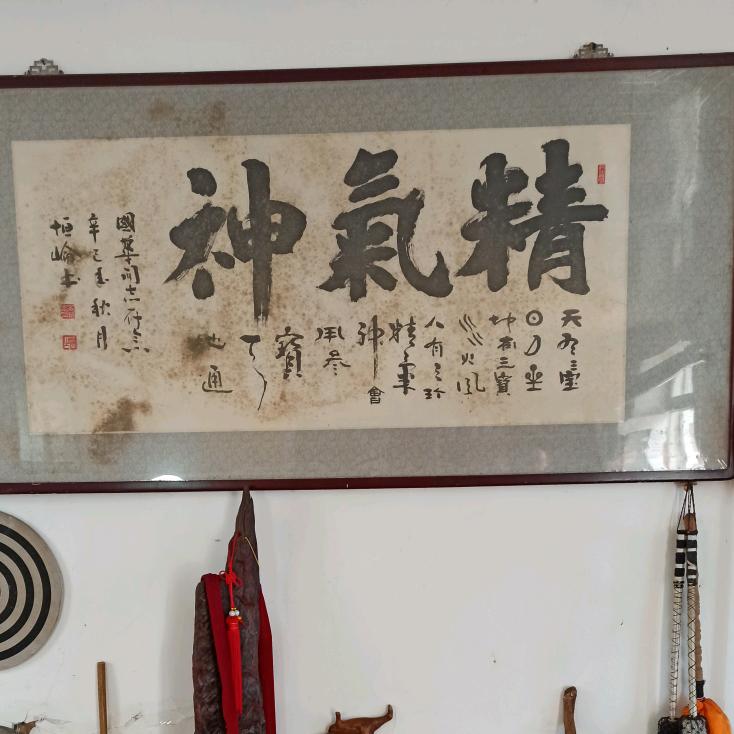 精氣神
天有三寶
日月星
地有三寶
水火風
人有三珍
精氣
神
會
用參
寶
天
地通
國華同志存念
辛巳年秋月
恒峰书